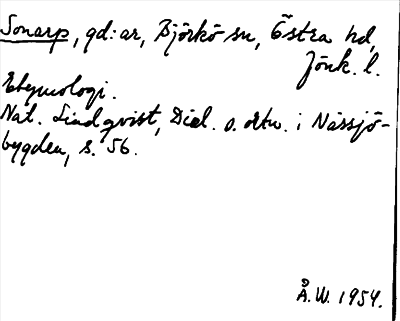 Sonarp, gd:ar, Björkö sn, Östra hd,
Jönk. l.
Etymologi.
Nat. Lindqvist, Dial. o. ortn. i Nässjö-
bygden, s. 56.
Å.W. 1954.